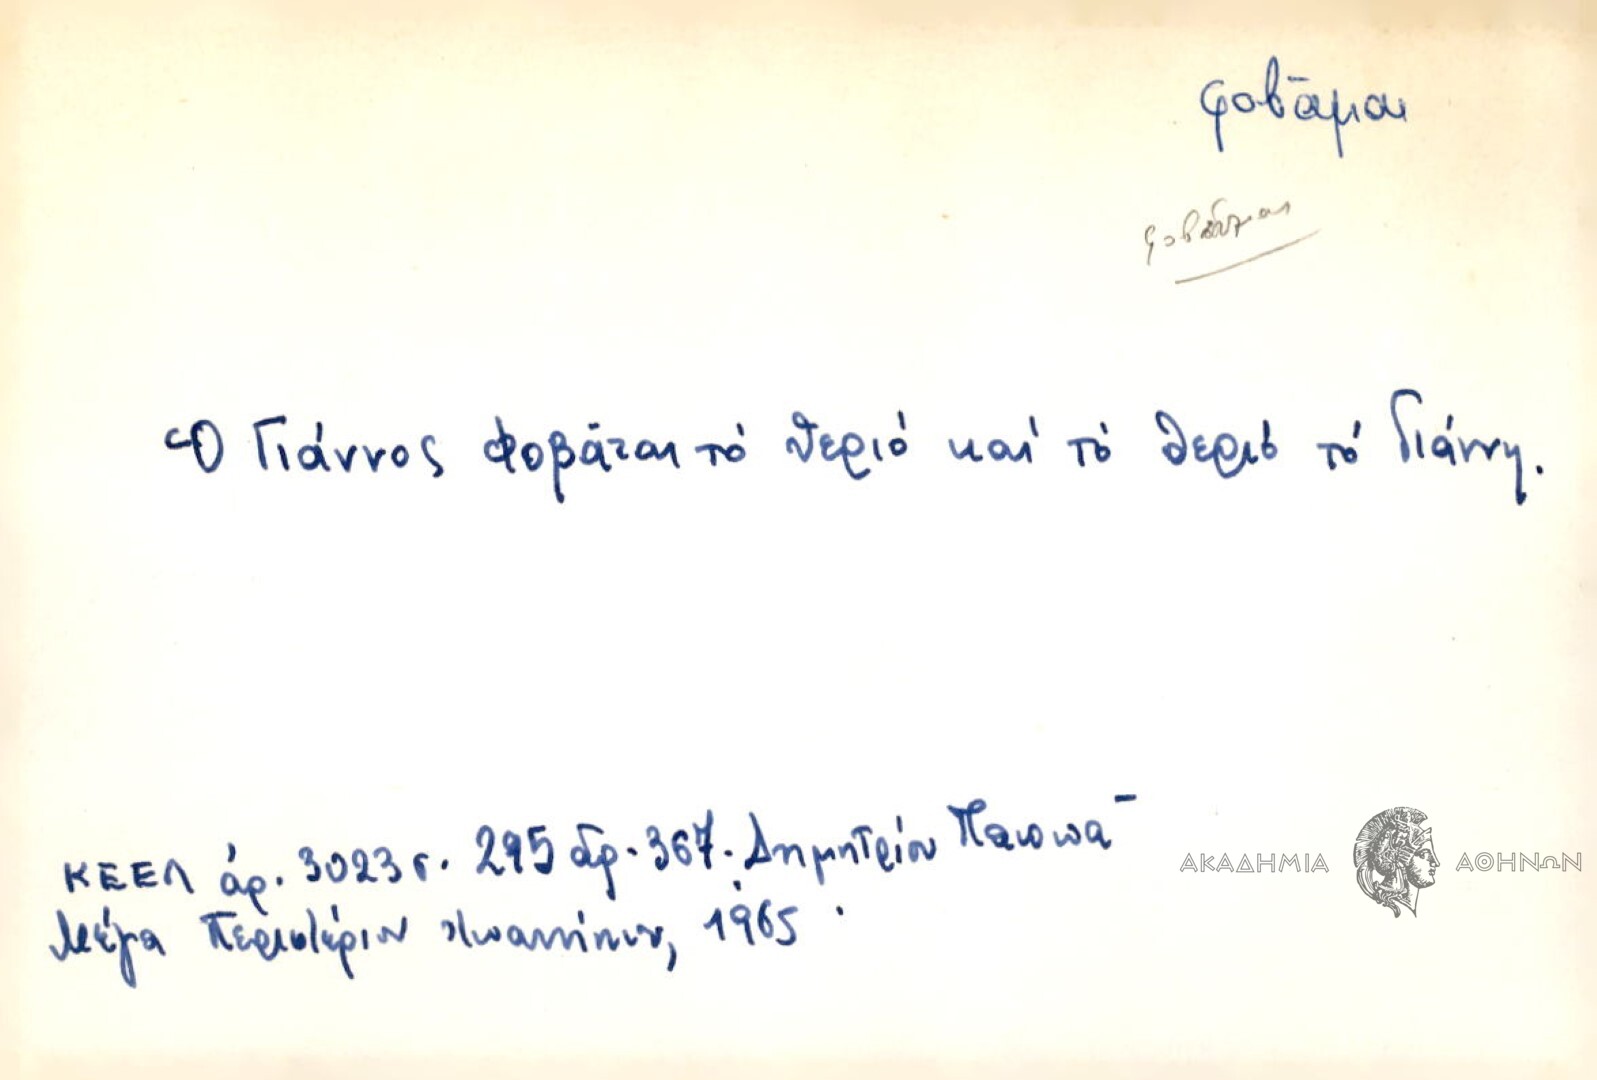 φοβᾶμαι
φοβᾶμαι
Ὁ Γιάννος φοβᾶται τό θεριό καί τό θεριό τό Γιάννη.
ΚΕΕΛ ἀρ. 3023 σ. 295 ἀρ. 367. Δημητρίου
Μέγα Περιστέριον Ἰωαννίνων, 1965.
ΑΚΑΔΗΜΙΑ ΑΘΗΝΩΝ